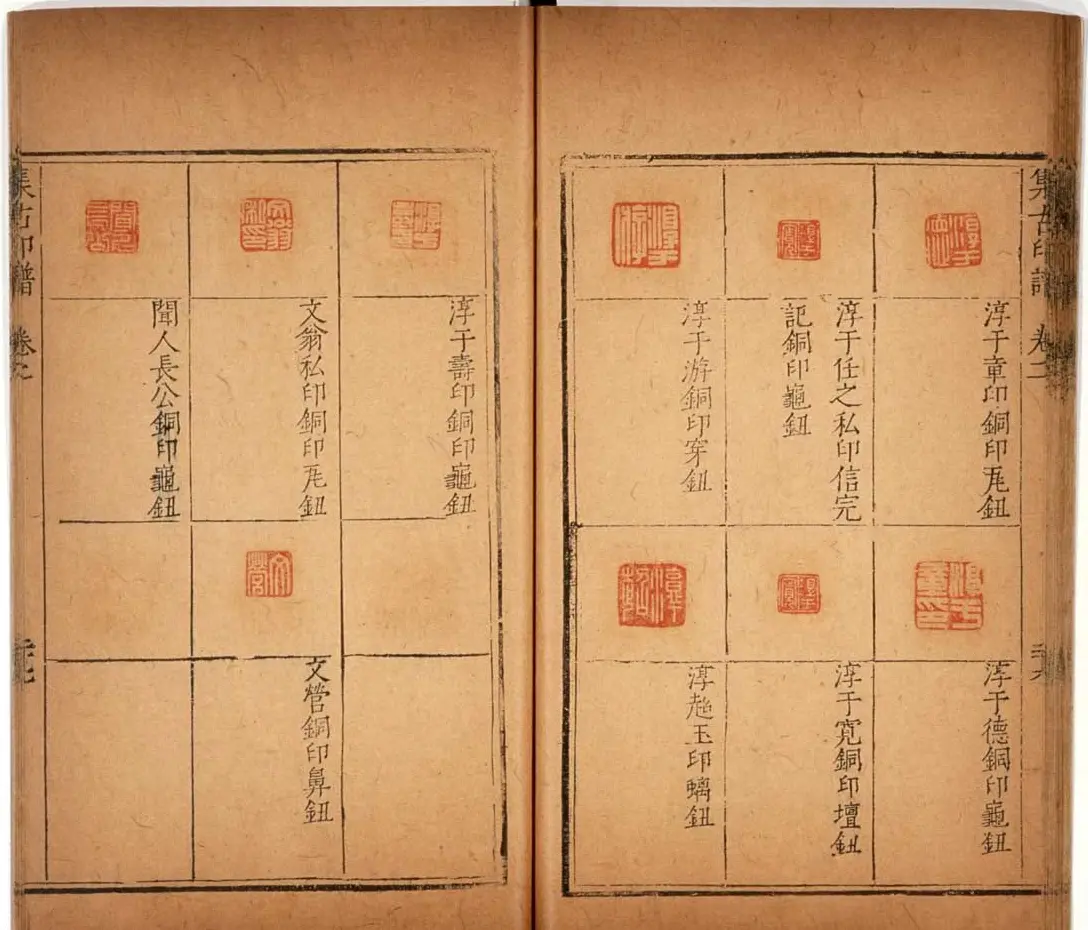 集古印譜 卷二
淳于童印銅印瓦鈕
淳于德銅印龜鈕
淳于任之私印信完
記銅印龜鈕
淳于寬銅印壇鈕
淳于游銅印穿鈕
淳趫玉印螭鈕
淳于壽印銅印龜鈕
文翁私印銅印瓦鈕
文營銅印鼻鈕
聞人長公銅印龜鈕
集古印譜 卷之